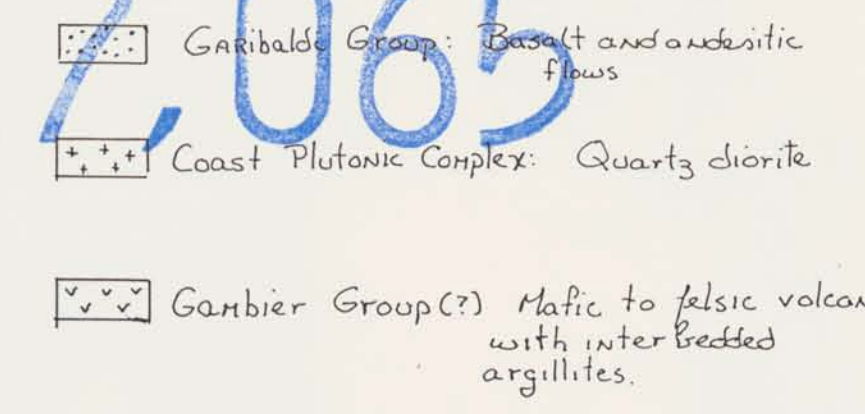 2,065
Garibaldi Group: Basalt and andesitic
flows
Coast Plutonic Complex: Quartz diorite
Gambier Group(?) Mafic to felsic volcan
with interbedded
argillites.